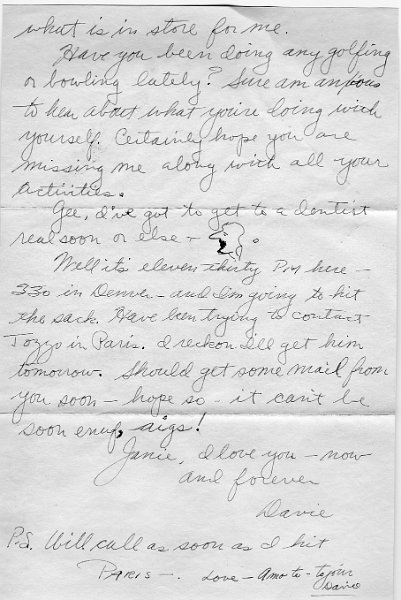 what is in store for me.
Have you been doing any golfing
or bowling lately? Sure am anxious
to hear about what you're doing with
yourself. Certainly hope you are
missing me along with all your
activities.
Gee, I've got to get to a dentist
real soon or else -
Well it's eleven thirty PM here -
330 in Denver - and I'm going to hit
the sack. Have been trying to contact
Tozzo in Paris. I reckon I'll get him
tomorrow. Should get some mail from
you soon - hope so - it can't be
soon enuf, aigs!
Janie, I love you - now
and forever
Davie
P.S. Will call as soon as I hit
Paris -. Love - Amo te - toujour
Davie